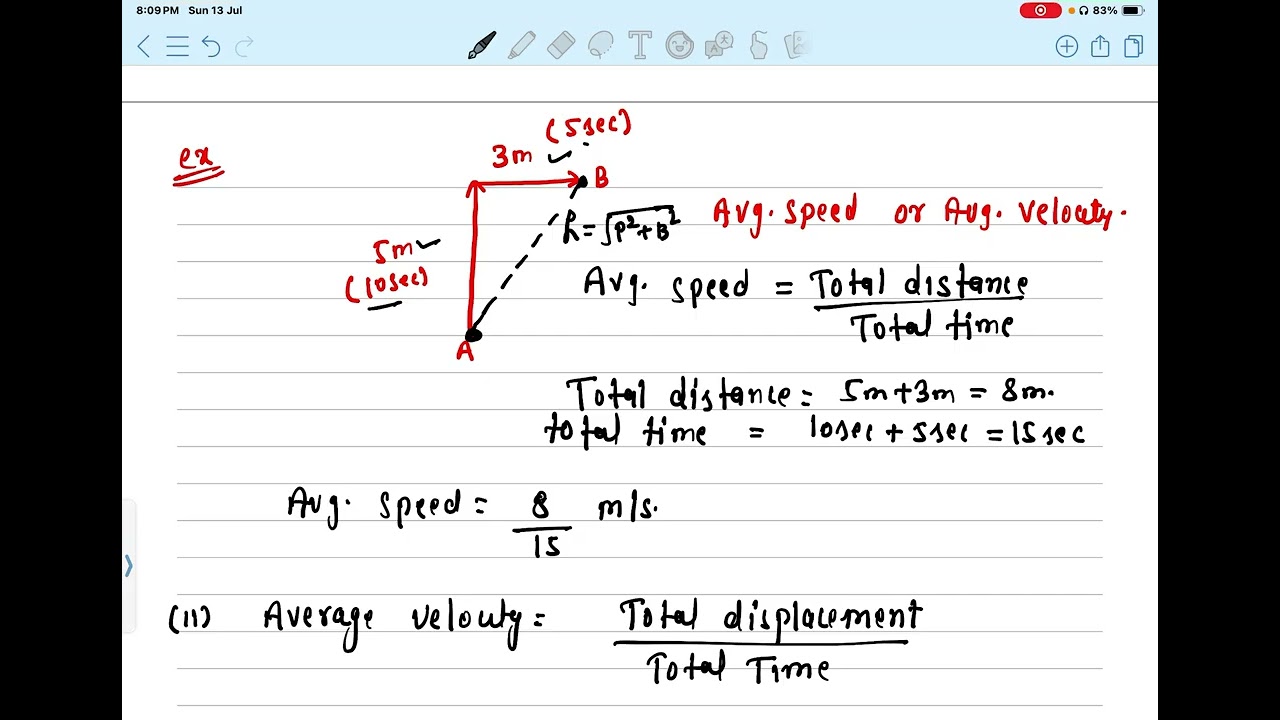 8:09 PM Sun 13 Jul
83%
ex
(5sec)
3m
B
h=√P²+B²
Avg. speed or Avg. velocity.
5m
(10sec)
A
Avg. speed = Total distance
Total time
Total distance = 5m+3m = 8m.
total time = 10sec + 5sec = 15sec
Avg. speed = 8 m/s.
15
(II) Average velocity = Total displacement
Total Time